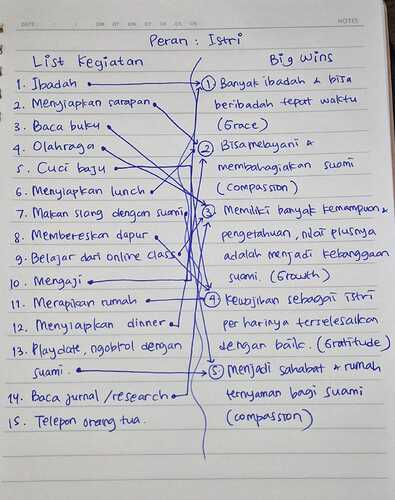 DATE :
NOTES
Peran : Istri
List Kegiatan
1. Ibadah
2. Menyiapkan sarapan
3. Baca buku
4. Olahraga
5. Cuci baju
6. Menyiapkan lunch
7. Makan siang dengan suami
8. Membereskan dapur
9. Belajar dari online class
10. Mengaji
11. Merapikan rumah
12. Menyiapkan dinner
13. Playdate, ngobrol dengan
suami.
14. Baca jurnal / research
15. Telepon orang tua.
Big Wins
1 Banyak ibadah & bisa
beribadah tepat waktu
(Grace)
2 Bisa melayani &
membahagiakan suami
(compassion)
3 Memiliki banyak kemampuan &
pengetahuan, nilai plusnya
adalah menjadi kebanggaan
suami. (Growth)
4 Kewajiban sebagai istri
per harinya terselesaikan
dengan baik. (Gratitude)
5 Menjadi sahabat & rumah
ternyaman bagi suami
(compassion)